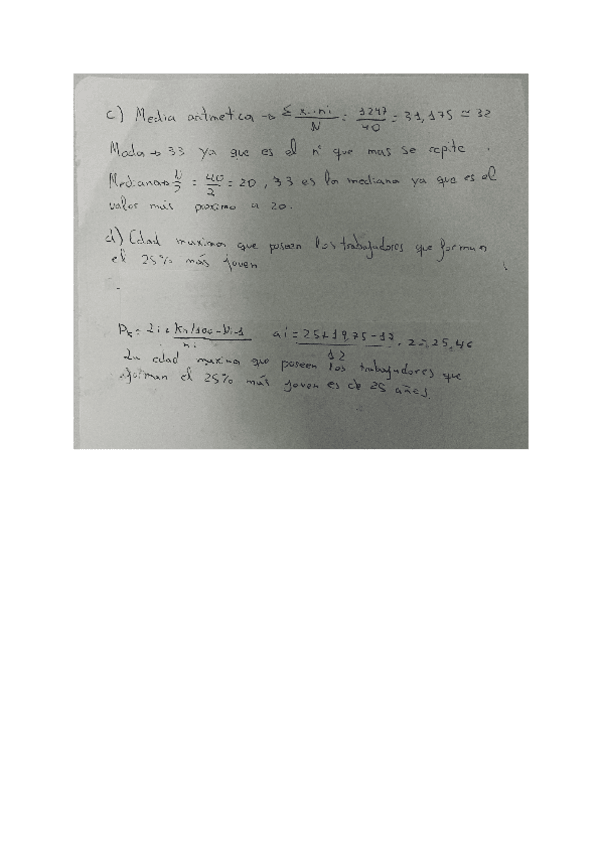 c) Media aritmetica → Σ x..ni / N = 1247 / 40 = 31,175 ≃ 32
Moda → 33 ya que es el nº que mas se repite.
Mediana → N/2 = 40/2 = 20, 33 es la mediana ya que es el
valor más proximo a 20.
d) Edad maxima que poseen los trabajadores que forman
el 25% más joven
Pk = Li + kn/100 - Ni-1 / ni . ai = 25+ 19,75-12 / 12 . 2 = 25,46
La edad maxima que poseen los trabajadores que
forman el 25% más joven es de 25 años.